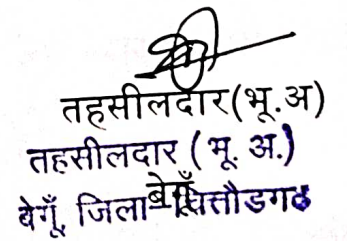 तहसीलदार(भू.अ)
तहसीलदार ( भू. अ.)
बेगूँ
बेगूँ, जिला-चित्तौडगढ